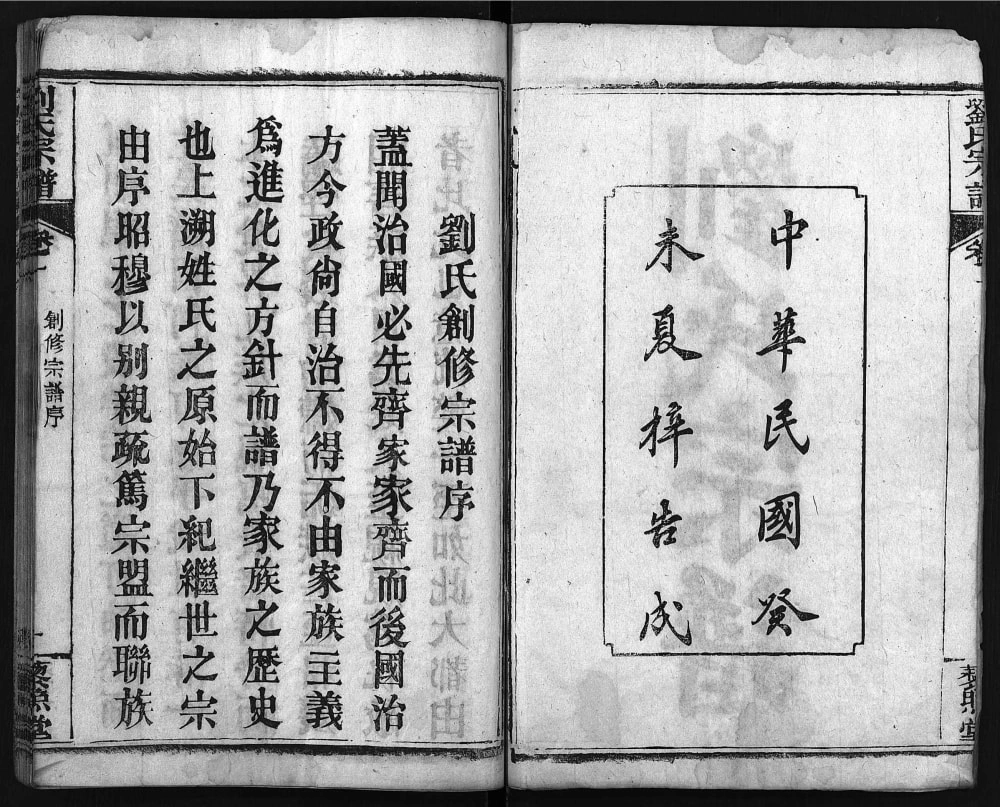 劉氏宗譜
卷一
中華民國癸
未夏梓告成
藜照堂
劉氏創修宗譜序
蓋聞治國必先齊家家齊而後國治
方今政尙自治不得不由家族主義
爲進化之方針而譜乃家族之歷史
也上溯姓氏之原始下紀繼世之宗
由序昭穆以别親疏篤宗盟而聯族
劉氏宗譜
卷一
創修宗譜序
一
藜照堂